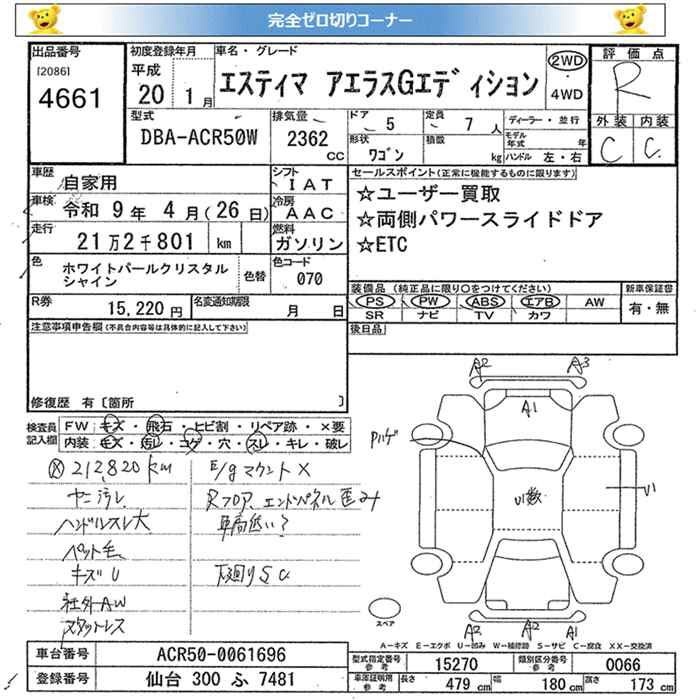 完全ゼロ切りコーナー
出品番号
[2086]
4661
初度登録年月
平成
20 1月
車名・グレード
エスティマ アエラスGエディション
2WD
・
4WD
評価点
R
外装 内装
C C
型式
DBA-ACR50W
排気量
2362 cc
ドア 5
定員 7人
形状 ワゴン
積数 kg
ディーラー・並行
モデル年式 年
ハンドル 左・右
車歴 自家用
シフト IAT
車検 令和 9年 4月(26日)
冷房 AAC
走行 21万2千801 km
燃料 ガソリン
色 ホワイトパールクリスタルシャイン
色替
色コード 070
R券 15,220円
名変通知期限 月 日
セールスポイント(正常に機能するものに限ります)
☆ユーザー買取
☆両側パワースライドドア
☆ETC
装備品(純正品に限り○をつけてください)
新車保証書
PS PW ABS エアB AW
SR ナビ TV カワ
有・無
後日品
注意事項申告欄(不具合内容等は具体的に記入して下さい)
修復歴 有〔箇所 〕
検査員記入欄
FW キズ・飛石・ヒビ割・リペア跡・×要
内装 キズ・汚レ・コゲ・穴・スレ・キレ・破レ
212,820km
ヤニ汚レ
ハンドルスレ大
ペット毛
キズU
社外AW
スタットレス
E/gマウント×
Rフロア、エンドパネル歪み
車高低い?
下廻りSC
A2 A3
A1
Pハゲ
U1数
U1
A2 A2 A1
スペア
A−キズ E−エクボ U−凹み W−補修跡 S−サビ C−腐食 XX−交換済
車台番号 ACR50-0061696
登録番号 仙台 300 ふ 7481
型式指定番号 参考 15270
類別区分番号 参考 0066
車庫証明用 参考 長さ 479cm 幅 180cm 高さ 173cm